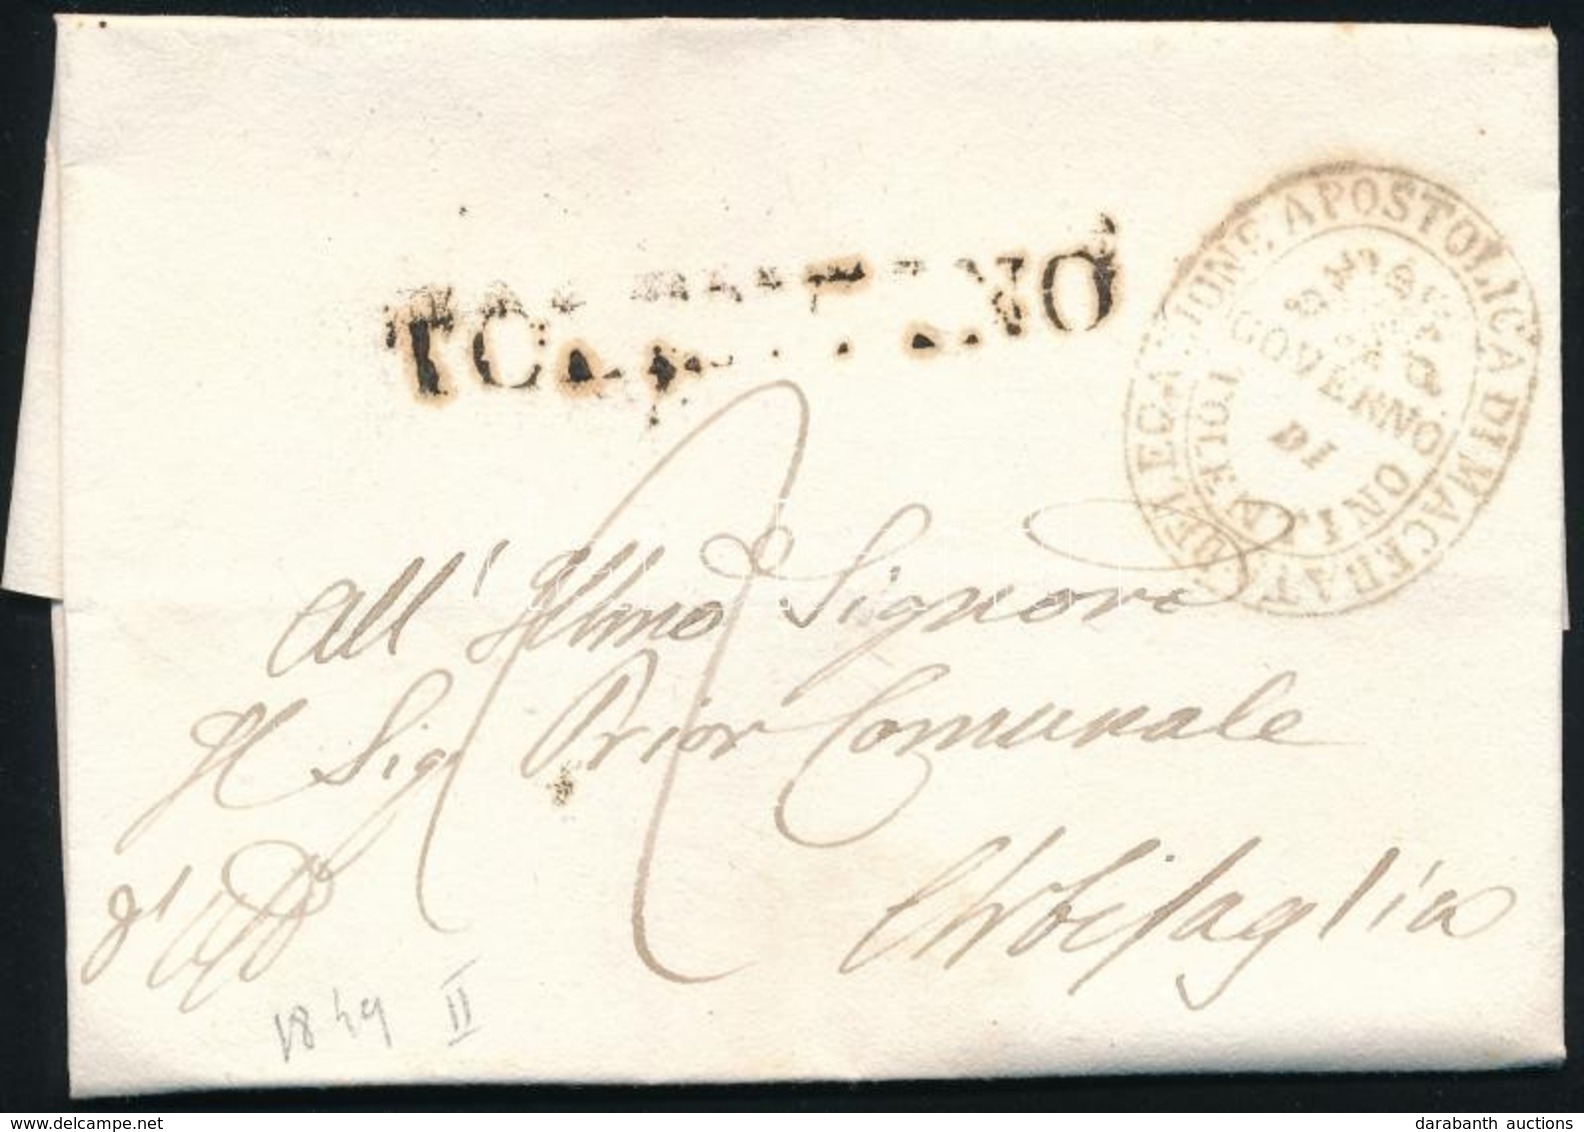 DELEGAZIONE APOSTOLICA DI MACERATA
GOVERNO
DI
TOLENTINO
All' Illmo Signore
Il Sig. Prior Comunale
Urbisaglia
1849 II
www.delcampe.net
darabanth auctions